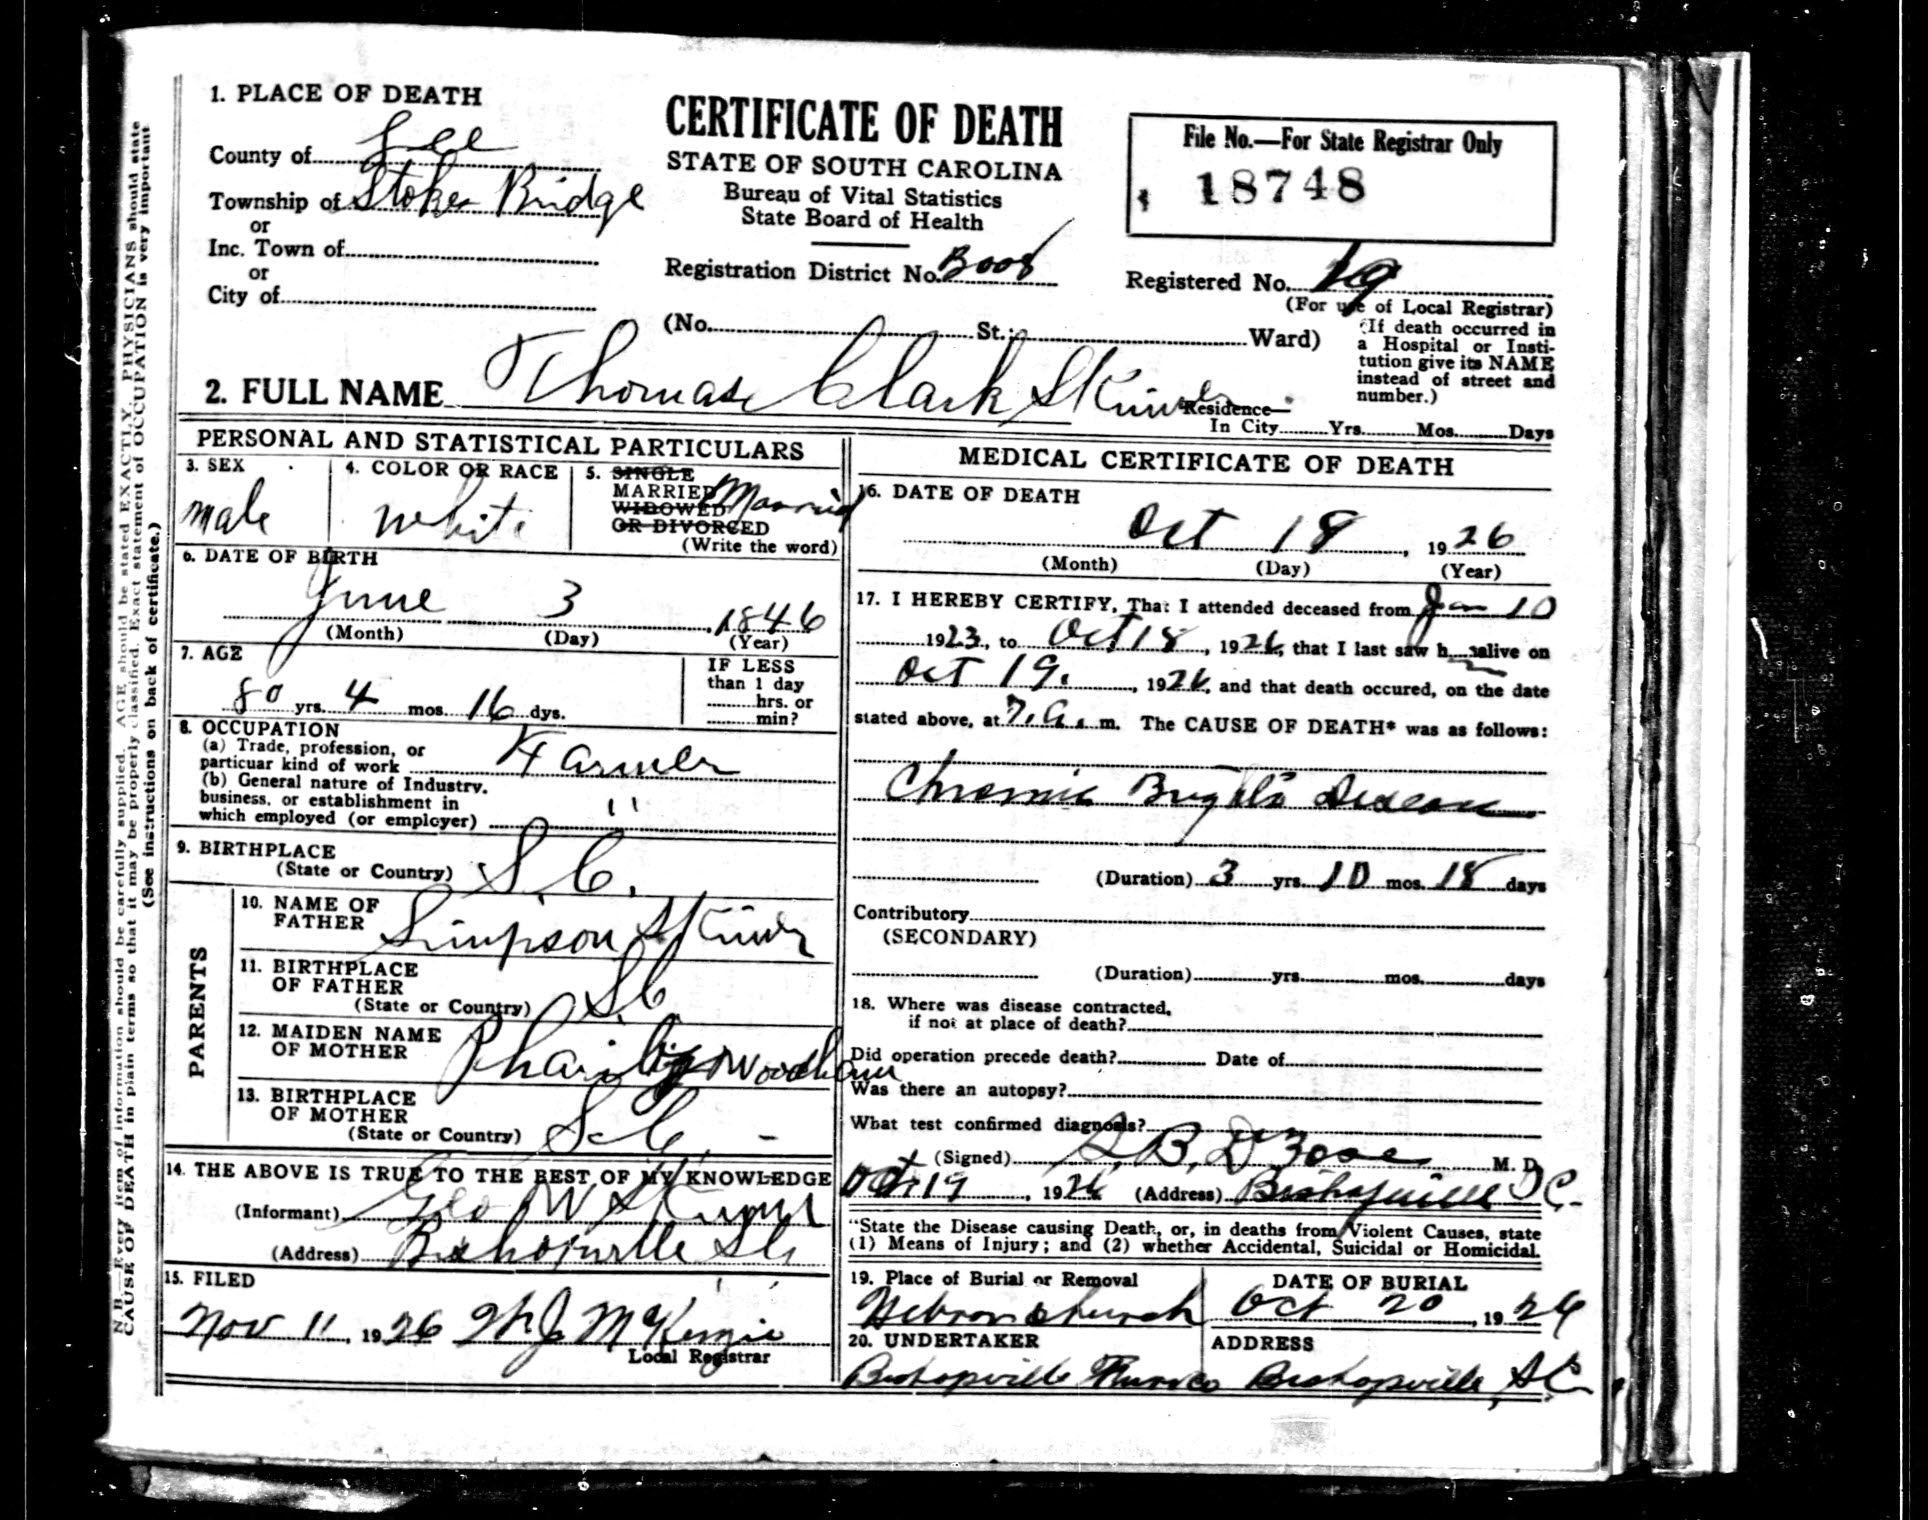 1. PLACE OF DEATH
County of Lee
Township of Stokes Bridge
or
Inc. Town of
or
City of
CERTIFICATE OF DEATH
STATE OF SOUTH CAROLINA
Bureau of Vital Statistics
State Board of Health
Registration District No.
File No.—For State Registrar Only
18748
Registered No. 19
(For use of Local Registrar)
(No. St.; Ward)
(If death occurred in
a Hospital or Insti-
tution give its NAME
instead of street and
number.)
2. FULL NAME Thomas Clark Skinner
Residence—
In City Yrs. Mos. Days
PERSONAL AND STATISTICAL PARTICULARS
3. SEX
male
4. COLOR OR RACE
white
5. SINGLE
MARRIED Married
WIDOWED
OR DIVORCED
(Write the word)
6. DATE OF BIRTH
June 3 , 1846
(Month) (Day) (Year)
7. AGE
80 yrs. 4 mos. 16 dys.
IF LESS
than 1 day
hrs. or
min?
8. OCCUPATION
(a) Trade, profession, or
particuar kind of work Farmer
(b) General nature of Industry.
business, or establishment in
which employed (or employer) "
9. BIRTHPLACE
(State or Country) S.C.
PARENTS
10. NAME OF
FATHER Simpson Skinner
11. BIRTHPLACE
OF FATHER
(State or Country) S.C
12. MAIDEN NAME
OF MOTHER Woodham
13. BIRTHPLACE
OF MOTHER
(State or Country) S.C. -
14. THE ABOVE IS TRUE TO THE BEST OF MY KNOWLEDGE
(Informant) Geo W Skinner
(Address) Bishopville S.C.
15. FILED
Nov 11, 1926 McKenzie
Local Registrar
MEDICAL CERTIFICATE OF DEATH
16. DATE OF DEATH
Oct 18 , 1926
(Month) (Day) (Year)
17. I HEREBY CERTIFY, That I attended deceased from Jan 10
1923, to Oct 18, 1926, that I last saw h alive on
Oct 19., 1926, and that death occured, on the date
stated above, at 7.a. m. The CAUSE OF DEATH* was as follows:
Chronic Bright's Disease
(Duration) 3 yrs. 10 mos. 18 days
Contributory
(SECONDARY)
(Duration) yrs. mos. days
18. Where was disease contracted,
if not at place of death?
Did operation precede death? Date of
Was there an autopsy?
What test confirmed diagnosis?
(Signed) M. D.
Oct 19, 1926 (Address) Bishopville S.C.
"State the Disease causing Death, or, in deaths from Violent Causes, state
(1) Means of Injury; and (2) whether Accidental, Suicidal or Homicidal.
19. Place of Burial or Removal
Hebron church
DATE OF BURIAL
Oct 20, 1926
20. UNDERTAKER
Bishopville Furn Co
ADDRESS
Bishopville, S.C.
N. B.—Every item of information should be carefully supplied. AGE should be stated EXACTLY. PHYSICIANS should state
CAUSE OF DEATH in plain terms so that it may be properly classified. Exact statement of OCCUPATION is very important
(See instructions on back of certificate.)